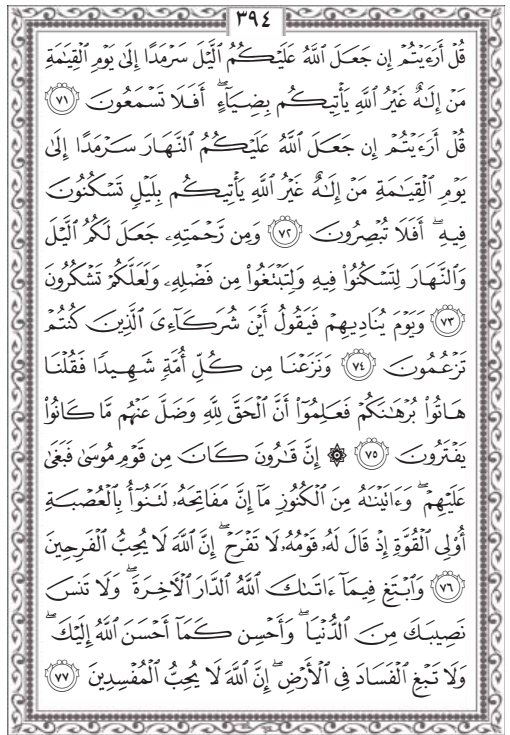 ٣٩٤
قُلْ أَرَءَيْتُمْ إِن جَعَلَ ٱللَّهُ عَلَيْكُمُ ٱلَّيْلَ سَرْمَدًا إِلَىٰ يَوْمِ ٱلْقِيَـٰمَةِ
مَنْ إِلَـٰهٌ غَيْرُ ٱللَّهِ يَأْتِيكُم بِضِيَآءٍ ۖ أَفَلَا تَسْمَعُونَ ٧١
قُلْ أَرَءَيْتُمْ إِن جَعَلَ ٱللَّهُ عَلَيْكُمُ ٱلنَّهَارَ سَرْمَدًا إِلَىٰ
يَوْمِ ٱلْقِيَـٰمَةِ مَنْ إِلَـٰهٌ غَيْرُ ٱللَّهِ يَأْتِيكُم بِلَيْلٍ تَسْكُنُونَ
فِيهِ ۖ أَفَلَا تُبْصِرُونَ ٧٢ وَمِن رَّحْمَتِهِۦ جَعَلَ لَكُمُ ٱلَّيْلَ
وَٱلنَّهَارَ لِتَسْكُنُوا۟ فِيهِ وَلِتَبْتَغُوا۟ مِن فَضْلِهِۦ وَلَعَلَّكُمْ تَشْكُرُونَ
٧٣ وَيَوْمَ يُنَادِيهِمْ فَيَقُولُ أَيْنَ شُرَكَآءِىَ ٱلَّذِينَ كُنتُمْ
تَزْعُمُونَ ٧٤ وَنَزَعْنَا مِن كُلِّ أُمَّةٍ شَهِيدًا فَقُلْنَا
هَاتُوا۟ بُرْهَـٰنَكُمْ فَعَلِمُوٓا۟ أَنَّ ٱلْحَقَّ لِلَّهِ وَضَلَّ عَنْهُم مَّا كَانُوا۟
يَفْتَرُونَ ٧٥ ۞ إِنَّ قَـٰرُونَ كَانَ مِن قَوْمِ مُوسَىٰ فَبَغَىٰ
عَلَيْهِمْ ۖ وَءَاتَيْنَـٰهُ مِنَ ٱلْكُنُوزِ مَآ إِنَّ مَفَاتِحَهُۥ لَتَنُوٓأُ بِٱلْعُصْبَةِ
أُو۟لِى ٱلْقُوَّةِ إِذْ قَالَ لَهُۥ قَوْمُهُۥ لَا تَفْرَحْ ۖ إِنَّ ٱللَّهَ لَا يُحِبُّ ٱلْفَرِحِينَ
٧٦ وَٱبْتَغِ فِيمَآ ءَاتَىٰكَ ٱللَّهُ ٱلدَّارَ ٱلْـَٔاخِرَةَ ۖ وَلَا تَنسَ
نَصِيبَكَ مِنَ ٱلدُّنْيَا ۖ وَأَحْسِن كَمَآ أَحْسَنَ ٱللَّهُ إِلَيْكَ ۖ
وَلَا تَبْغِ ٱلْفَسَادَ فِى ٱلْأَرْضِ ۖ إِنَّ ٱللَّهَ لَا يُحِبُّ ٱلْمُفْسِدِينَ ٧٧